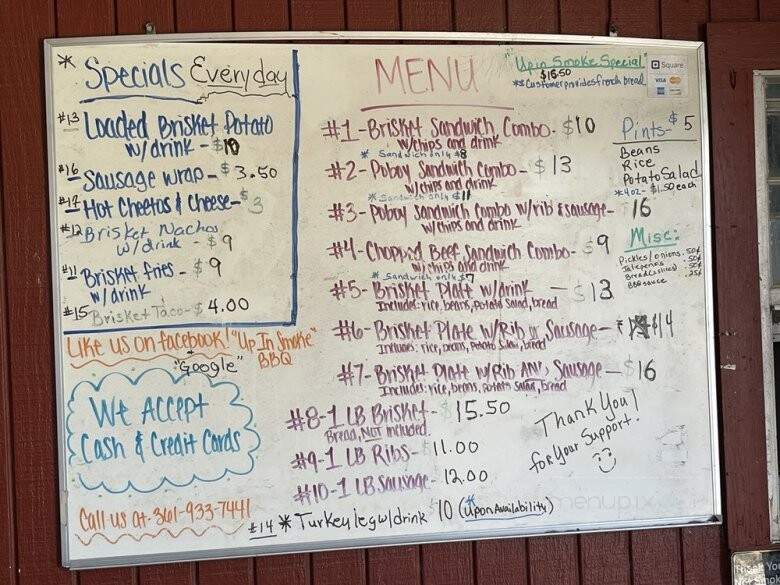 * Specials Everyday
#13 Loaded Brisket Potato
w/drink - $10
#16 Sausage wrap - $3.50
#17 Hot Cheetos & Cheese - $3
#12 Brisket Nachos
w/drink - $9
#11 Brisket fries - $9
w/drink
#15 Brisket Taco - $4.00
Like us on facebook! "Up In Smoke"
"Google" BBQ
We Accept
Cash & Credit Cards
Call us at - 361-933-7441
MENU
"Up in Smoke Special"
$15.50
** Customer provides french bread
Square
VISA
#1 - Brisket Sandwich Combo - $10
w/chips and drink
* Sandwich only $8
#2 - Poboy Sandwich Combo - $13
w/chips and drink
* Sandwich only $11
#3 - Poboy Sandwich Combo w/rib & sausage - 16
w/chips and drink
#4 - Chopped Beef Sandwich Combo - $9
w/chips and drink
* Sandwich only $7
#5 - Brisket Plate w/drink - $13
Includes: rice, beans, potato salad, bread
#6 - Brisket Plate w/Rib or Sausage - $14
Includes: rice, beans, potato salad, bread
#7 - Brisket Plate w/Rib AND Sausage - $16
Includes: rice, beans, potato salad, bread
#8 - 1 LB Brisket - 15.50
Bread, NOT included
#9 - 1 LB Ribs - 11.00
#10 - 1 LB Sausage - 12.00
#14 * Turkey leg w/drink 10 (Upon Availability)
Pints - $5
Beans
Rice
Potato Salad
* 4oz - $1.50 each
Misc:
Pickles/onions .50¢
Jalepenos .50¢
Bread .50¢
BBQ sauce .25¢
Thank You!
for Your Support.
Thank Yo